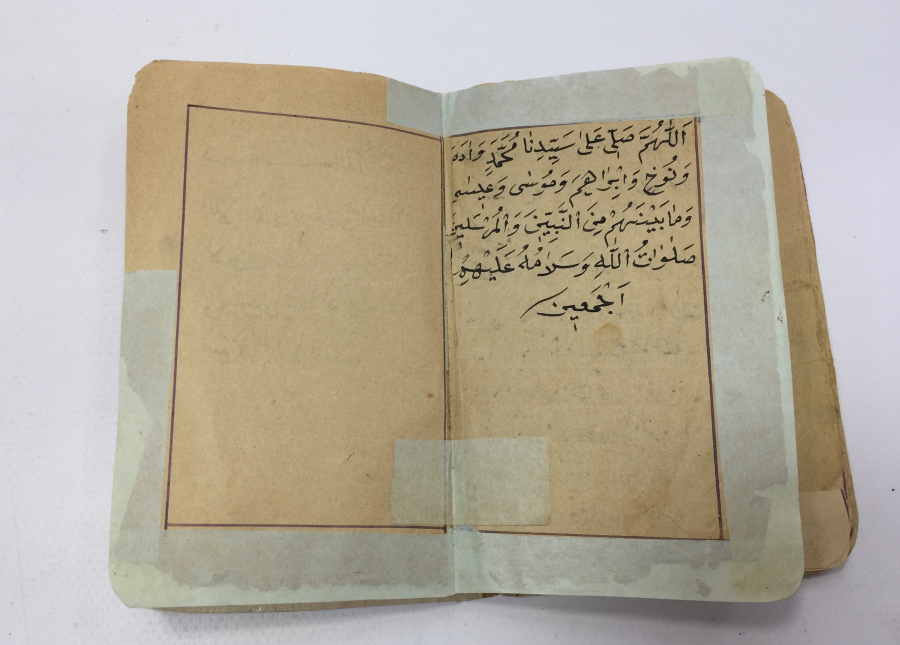 اَللّٰهُمَّ صَلِّ عَلٰى سَيِّدِنَا مُحَمَّدٍ وَاٰدَمَ
وَنُوحٍ وَاِبْرَاهِيمَ وَمُوسٰى وَعِيسٰى
وَمَا بَيْنَهُمْ مِنَ النَّبِيّٖنَ وَالْمُرْسَلِينَ
صَلَوَاتُ اللّٰهِ وَسَلَامُهُ عَلَيْهِمْ
اَجْمَعِينَ